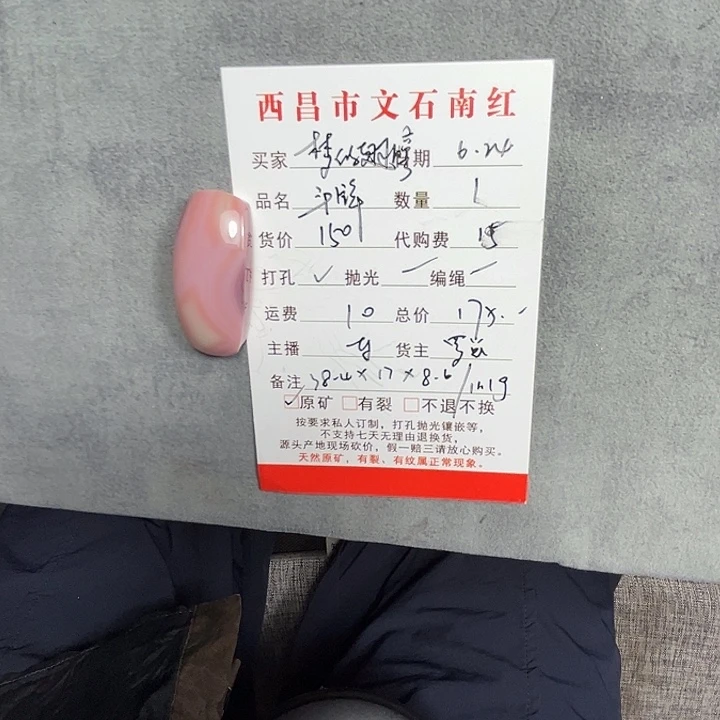 西昌市文石南红
买家 梦的翅膀 期 6.24
品名 数量 1
货价 150 代购费 15
打孔 ✓ 抛光 编绳
运费 10 总价
主播 货主
备注 38.4×17×8.6/
☑原矿 □有裂 □不退不换
按要求私人订制，打孔抛光镶嵌等，
不支持七天无理由退换货，
源头产地现场砍价，假一赔三请放心购买。
天然原矿，有裂、有纹属正常现象。